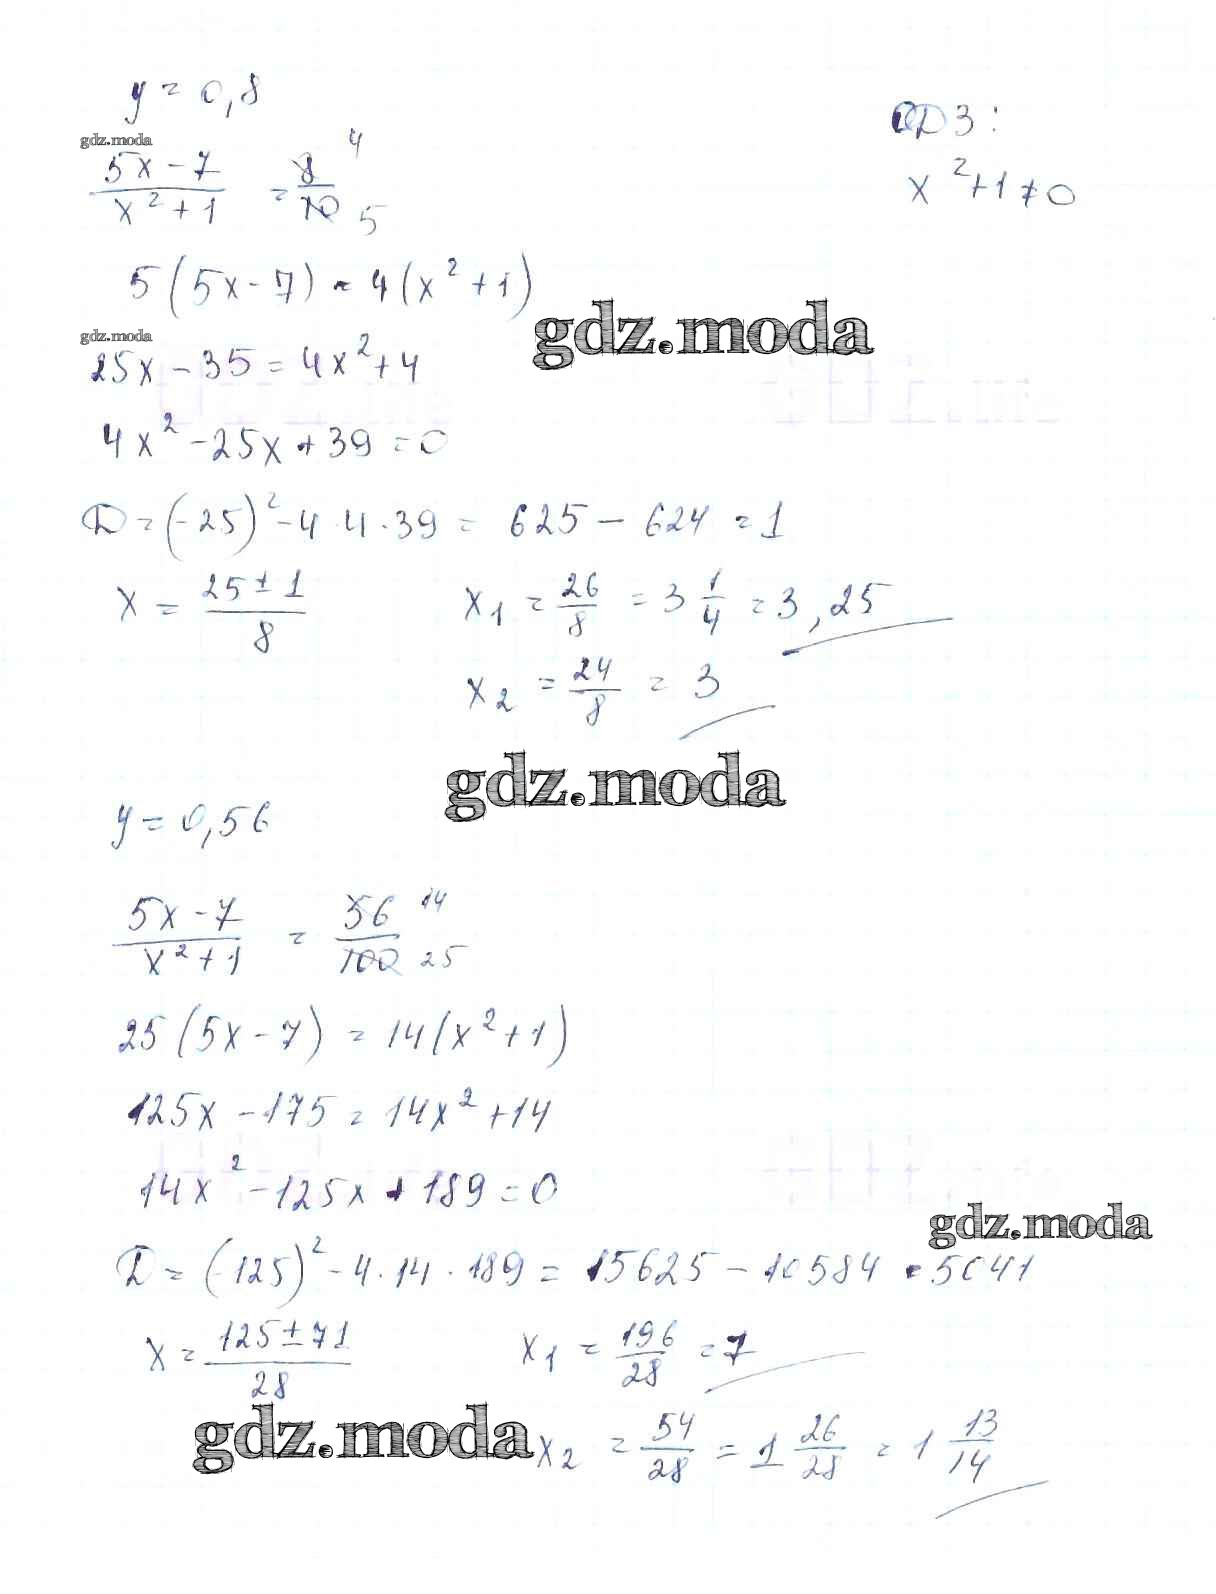 y = 0,8
ОДЗ:
gdz.moda
(5x - 7)/(x² + 1) = 8/10 4 5
x² + 1 ≠ 0
5(5x - 7) = 4(x² + 1)
gdz.moda
gdz.moda
25x - 35 = 4x² + 4
4x² - 25x + 39 = 0
D = (-25)² - 4 · 4 · 39 = 625 - 624 = 1
x = (25 ± 1)/8 x₁ = 26/8 = 3 1/4 = 3,25
x₂ = 24/8 = 3
gdz.moda
y = 0,56
(5x - 7)/(x² + 1) = 56/100 14 25
25(5x - 7) = 14(x² + 1)
125x - 175 = 14x² + 14
14x² - 125x + 189 = 0
gdz.moda
D = (-125)² - 4 · 14 · 189 = 15625 - 10584 = 5041
x = (125 ± 71)/28 x₁ = 196/28 = 7
gdz.moda
x₂ = 54/28 = 1 26/28 = 1 13/14